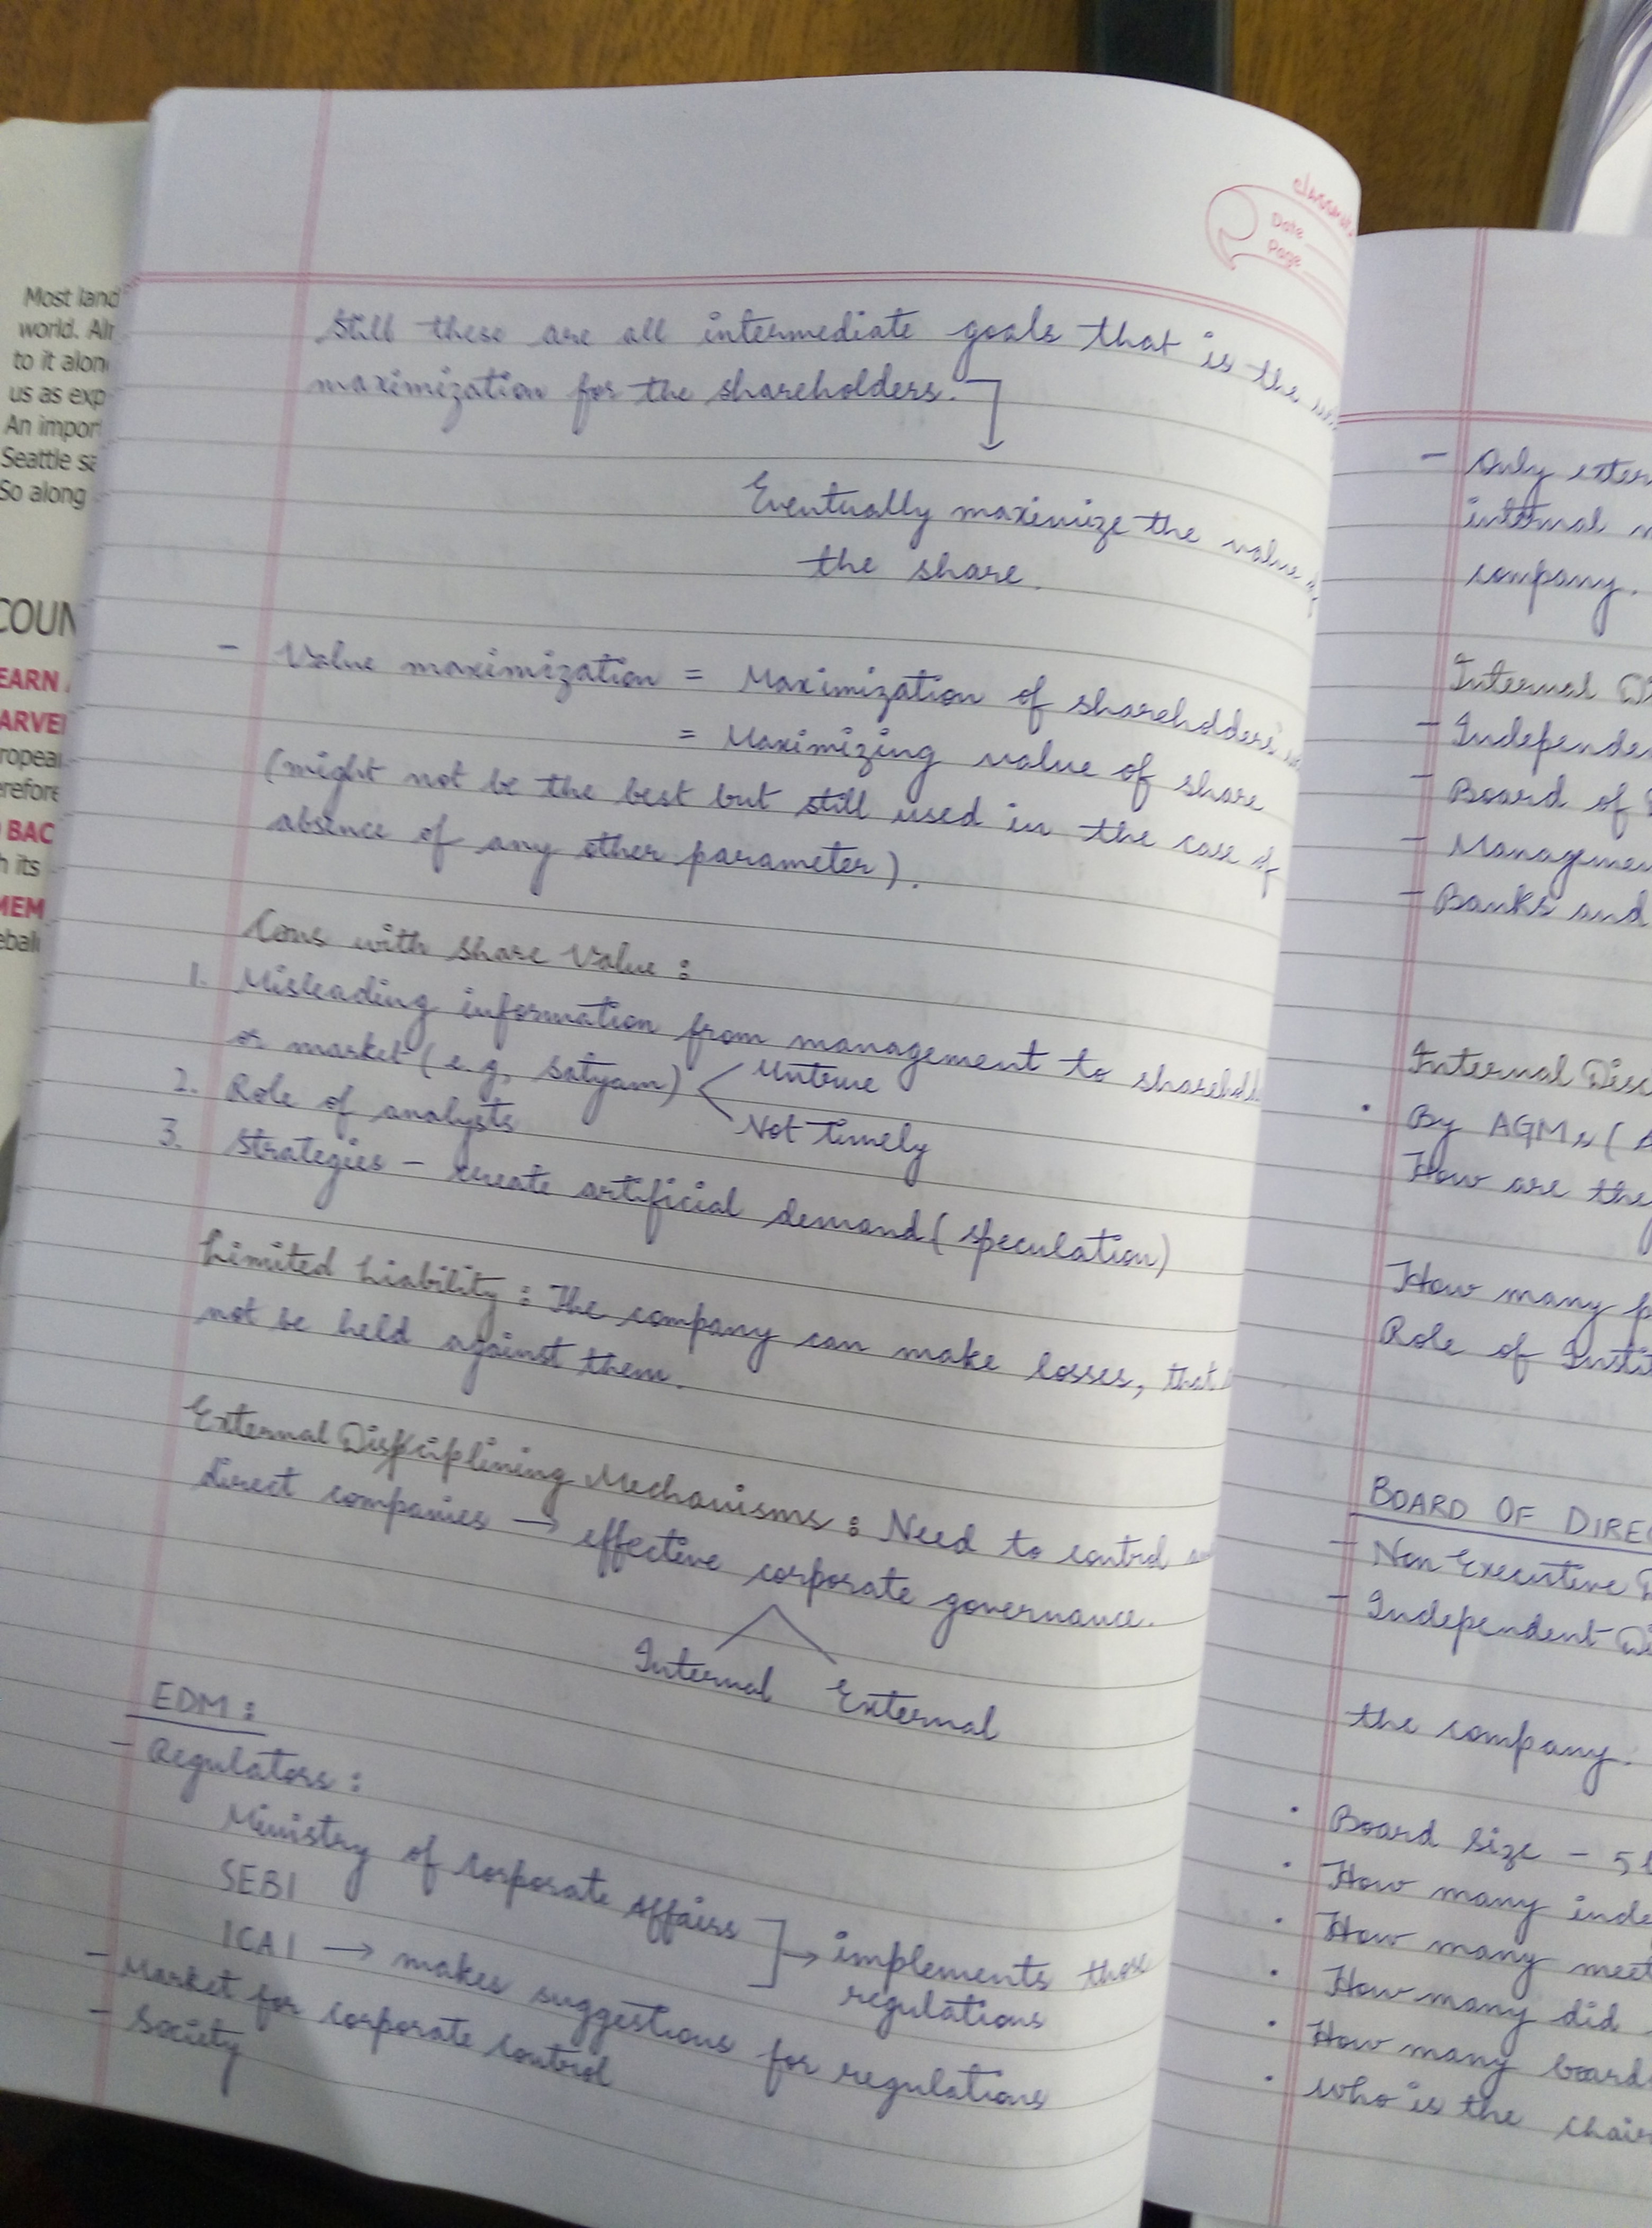 Most land
world.
to it along
us as exp
An import
Seattle
So along
COUN
EARN
ARVE
ropea
refore
BAC
h its
MEM
ebal
classmate
Date
Page
Still these are all intermediate goals that is the
maximization for the shareholders.
Eventually maximize the value of
the share.
- Value maximization = Maximization of shareholders'
= Maximizing value of share
(might not be the best but still used in the case of
absence of any other parameter).
Cons with share Value :
1. Misleading information from management to sharehold
or market (e.g, Satyam) Untrue
Not timely
2. Role of analysts
3. Strategies - create artificial demand (speculation)
Limited Liability : The company can make losses, that
not be held against them.
External Disciplining Mechanisms : Need to control
direct companies → effective corporate governance.
Internal External
EDM :
- Regulators :
Ministry of Corporate Affairs
SEBI
→ implements those
regulations
ICAI → makes suggestions for regulations
- Market for corporate control
- Society
- Only exter
internal
company.
Internal Di
- Independe
- Board of
- Managemen
- Banks and
Internal Disc
• By AGMs (
How are the
How many
Role of Insti
BOARD OF DIREC
- Non Executive
- Independent Di
the company.
• Board size - 5
• How many inde
• How many meet
• How many did
• How many board
• Who is the chair